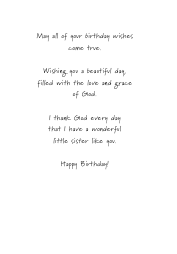 May all of your birthday wishes
come true.
Wishing you a beautiful day,
filled with the love and grace
of God.
I thank God every day
that I have a wonderful
little sister like you.
Happy Birthday!